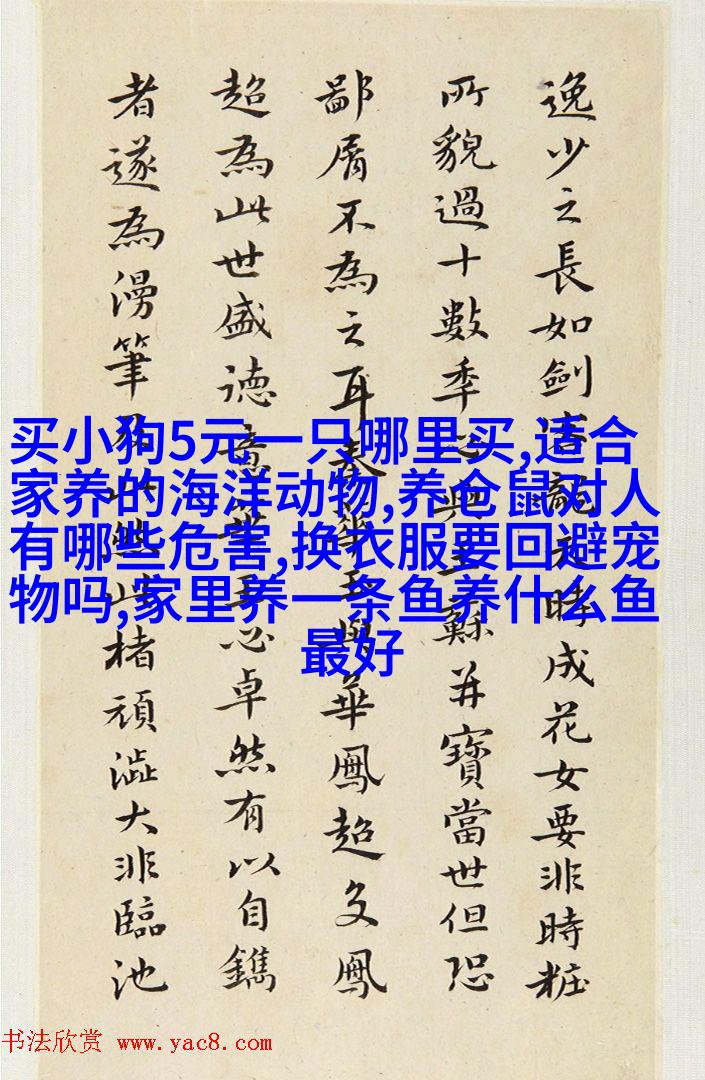 逸少之長如劍龍時成花女要非時粧
所貌過十數季蘇并寶當世但恐
鄙屑不為之耳華鳳超鳳
超為此世盛德意心卓然有以自鐫
者遂為漫筆此楮頑澁大非臨池
买小狗5元一只哪里买,适合
家养的海洋动物,养仓鼠对人
有哪些危害,换衣服要回避宠
物吗,家里养一条鱼养什么鱼
最好
书法欣赏 www.yac8.com